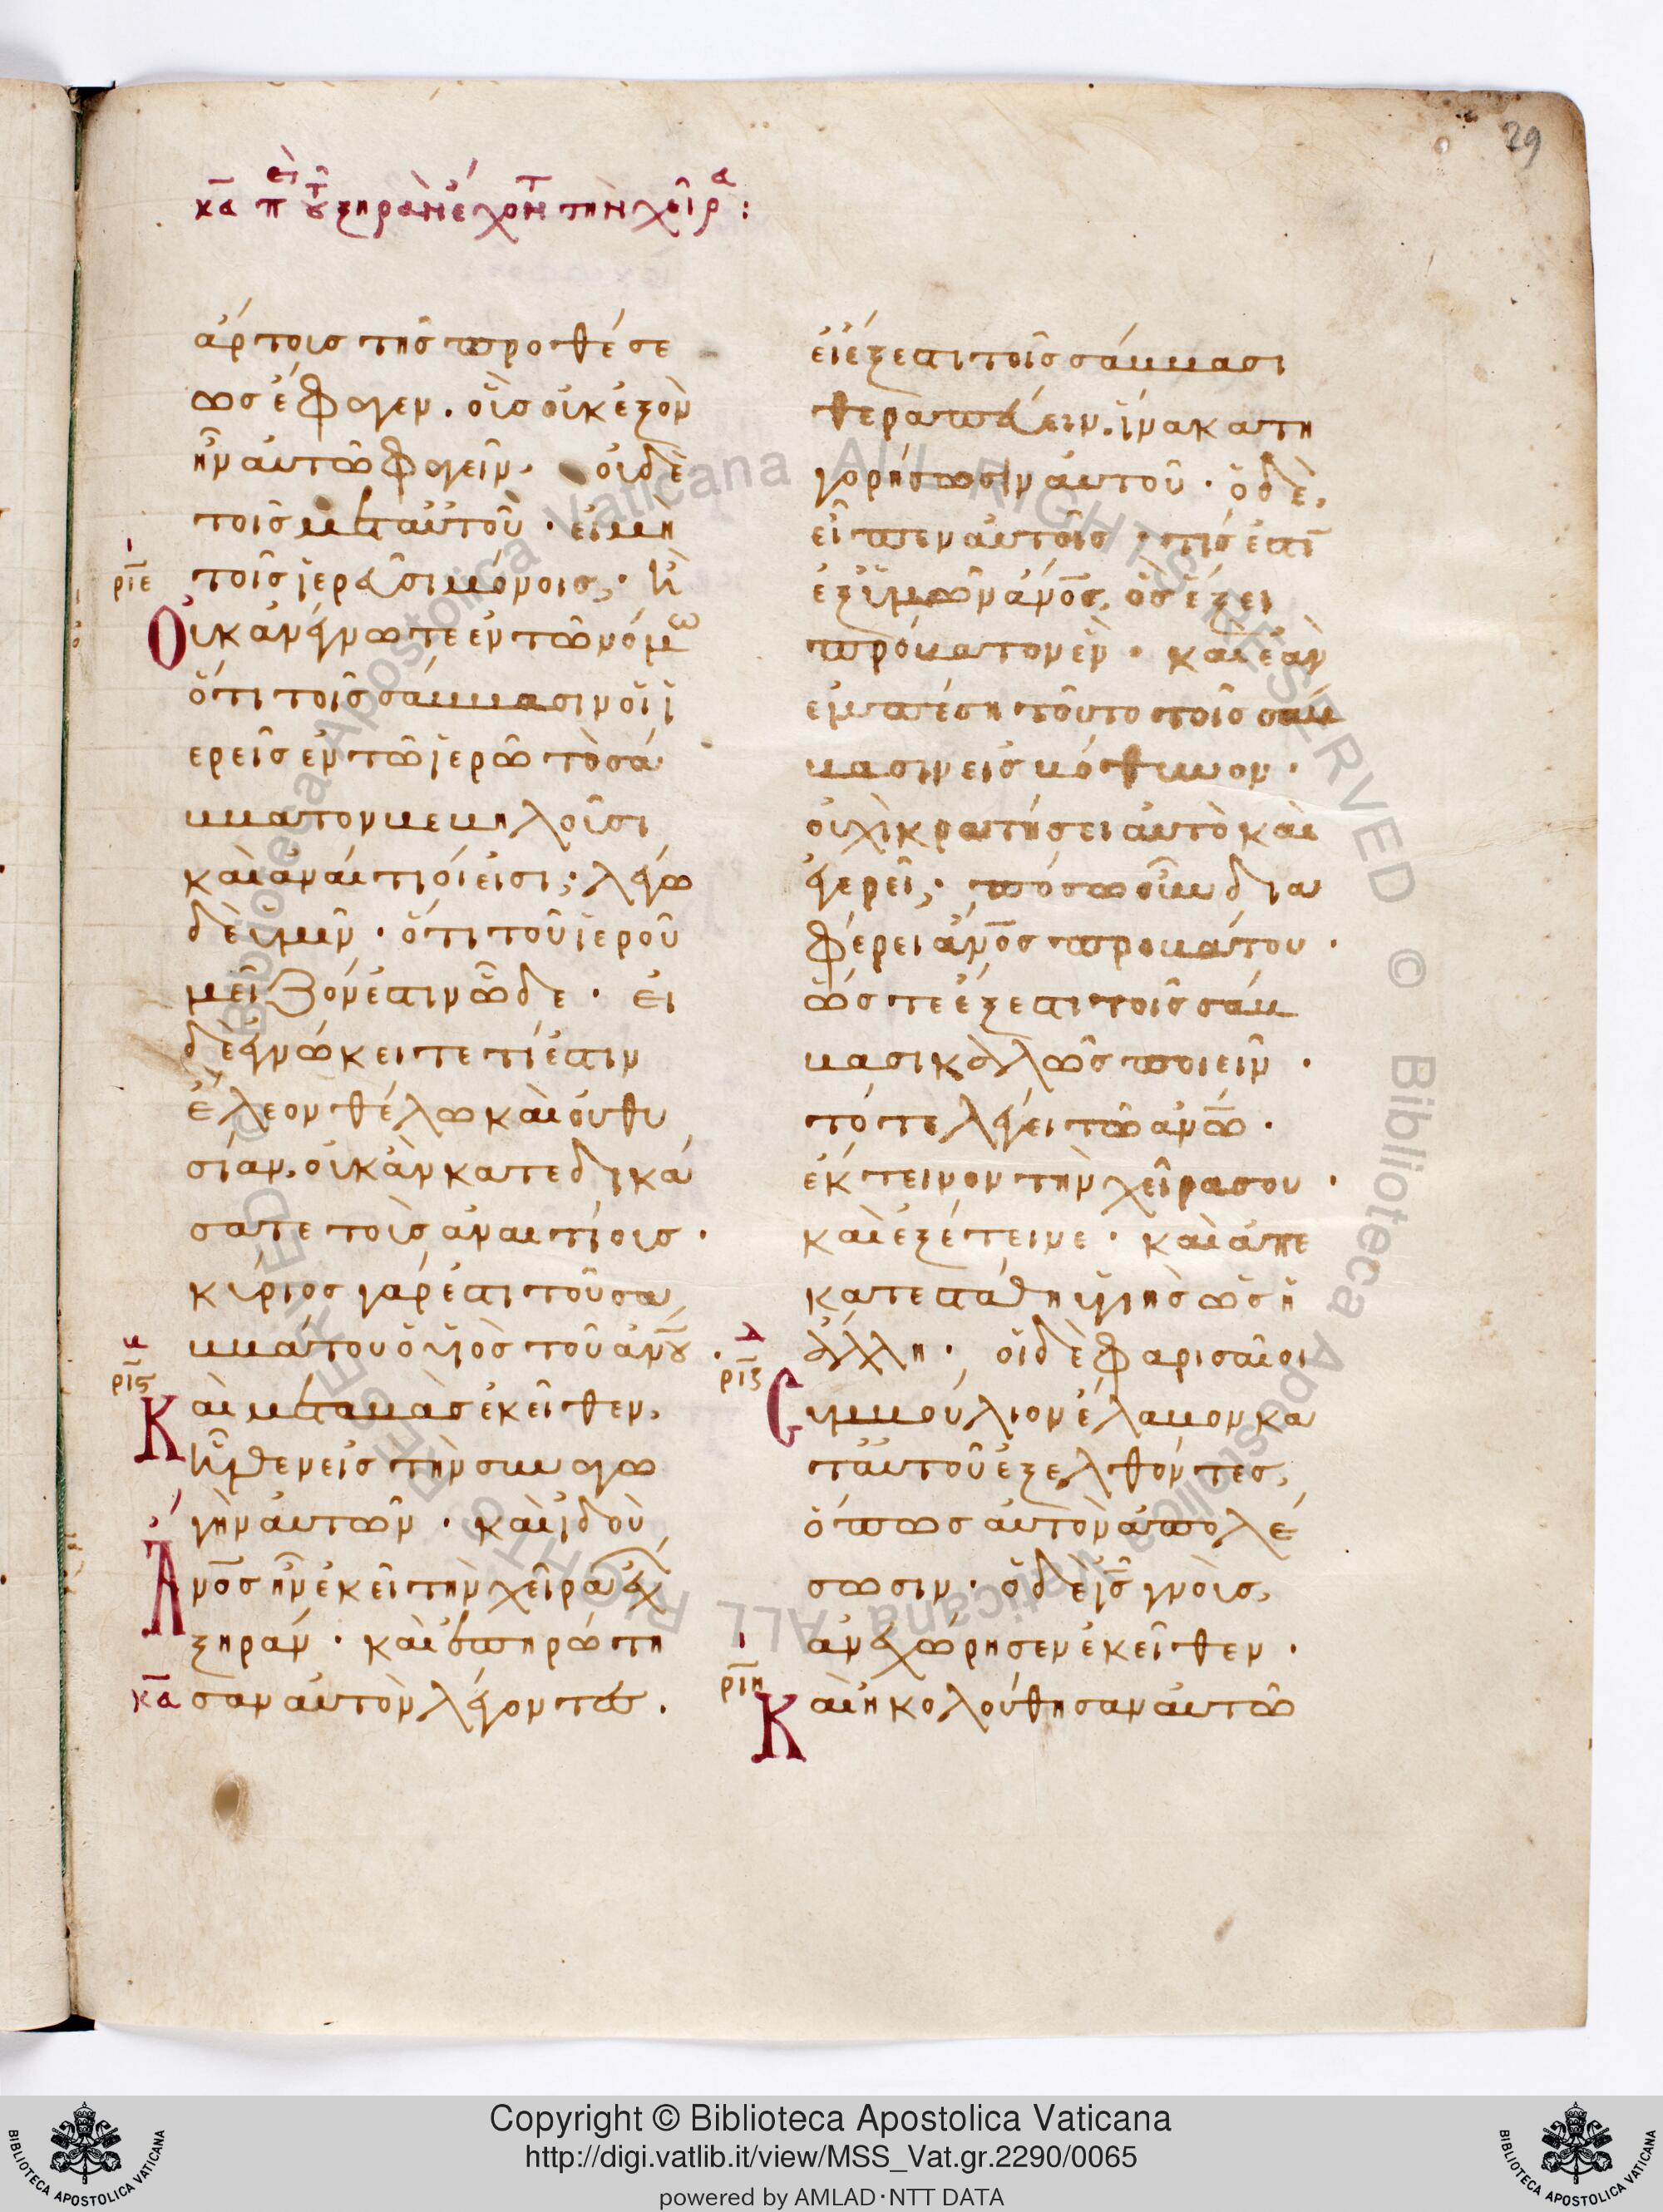 29
κα πεὶ τοῦ ξηρὰν ἔχοντ τὴν χεῖρα :
ἄρτοις τῆς προθέσε
ως ἔφαγεν . οἷς οὐκ ἐξὸν
ἦν αὐτῶ φαγεῖν . οὐδὲ
τοῖς μετ αὐτοῦ . εἰ μὴ
ι
ριε
τοῖς ἱερεῦσι μόνοις ; . ἢ
Οὐκ ἀνέγνωτε ἐν τῶ νόμω
ὅτι τοῖς σάββασιν οἱ ἱ
ερεῖς ἐν τῶ ἱερῶ τὸ σά
ββατον βεβηλοῦσι
καὶ ἀναίτιοί εἰσι ; λέγω
δὲ ὑμῖν . ὅτι τοῦ ἱεροῦ
μεῖζόν ἐστιν ὧδε . εἰ
δὲ ἐγνώκειτε τί ἐστιν
ἔλεον θέλω καὶ οὐ θυ
σίαν , οὐκ ἂν κατεδικά
σατε τοὺς ἀναιτίους .
κύριος γάρ ἐστι τοῦ σα
ββάτου ὁ υἱὸς τοῦ ἀνου .
β
ριϛ
Καὶ μεταβὰς ἐκεῖθεν ,
ἦλθεν εἰς τὴν συναγω
γὴν αὐτῶν . καὶ ἰδοὺ
Ανος ἦν ἐκεῖ τὴν χεῖρα ἔχ
ξηράν . καὶ ἐπηρώτη
κα
σαν αὐτὸν λέγοντες .
εἰ ἔξεστι τοῖς σάββασι
θεραπεύειν , ἵνα κατη
γορήσωσιν αὐτοῦ . ὁ δὲ ,
εἶπεν αὐτοῖς . τίς ἐστι
ἐξ ὑμῶν ανος , ὃς ἕξει
πρόβατον ἓν . καὶ ἐὰν
ἐμπέση τοῦτο τοῖς σάβ
βασιν εἰς βόθυνον .
οὐχὶ κρατήσει αὐτὸ καὶ
ἐγερεῖ ; . πόσω οὖν δια
φέρει ἄνος προβάτου .
ὥστε ἔξεστι τοῖς σάβ
βασι καλῶς ποιεῖν .
τότε λέγει τῶ ἀνω .
ἔκτεινον τὴν χεῖρα σου .
καὶ ἐξέτεινε . καὶ ἀπε
κατεστάθη ὑγιὴς ὡς ἡ
δ
ριζ
ἄλλη . οἱ δὲ φαρισαῖοι
Συμβούλιον ἔλαβον κα
τ αὐτοῦ ἐξελθόντες ,
ὅπως αὐτὸν ἀπολέ
σωσιν . ὁ δὲ ις γνοὺς ,
ἀνεχώρησεν ἐκεῖθεν .
ι
ριη
Καὶ ἠκολούθησαν αὐτῶ
Copyright © Biblioteca Apostolica Vaticana
http://digi.vatlib.it/view/MSS_Vat.gr.2290/0065
powered by AMLAD·NTT DATA
BIBLIOTECA APOSTOLICA VATICANA
BIBLIOTECA APOSTOLICA VATICANA
© Biblioteca Apostolica Vaticana ALL RIGHTS RESERVED © Biblioteca Apostolica Vaticana ALL RIGHTS RESERVED